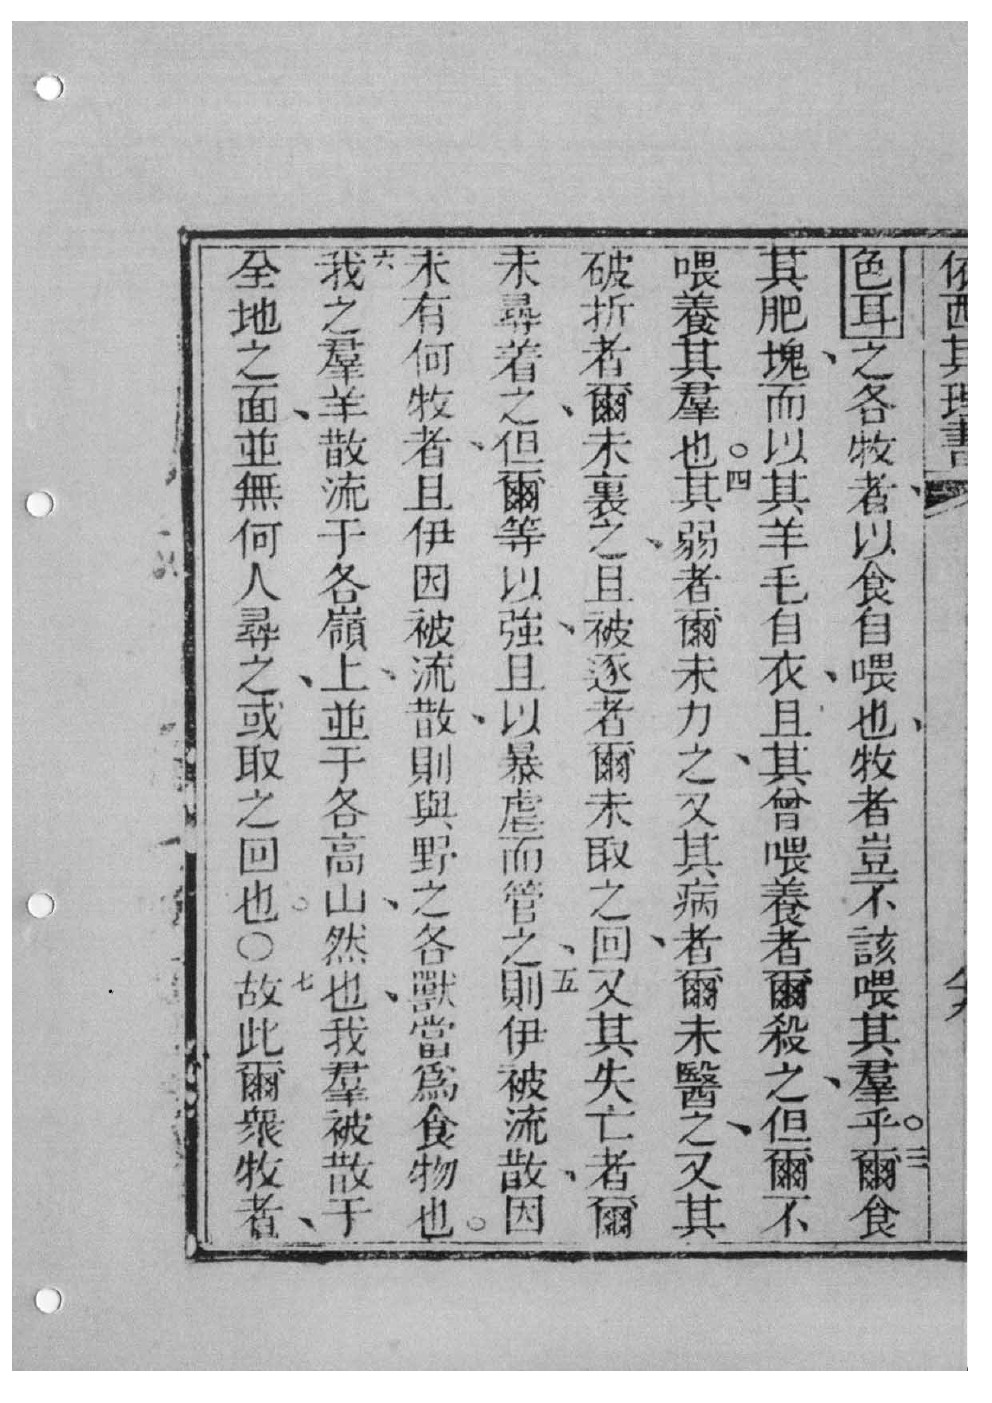 依西其理書
色耳之各牧者、以食自喂也、牧者豈不該喂其羣乎。三爾食
其肥塊、而以其羊毛自衣、且其曾喂養者爾殺之、但爾不
喂養其羣也。四其弱者爾未力之、又其病者爾未醫之、又其
破折者爾未裹之、且被逐者爾未取之回、又其失亡者爾
未尋着之、但爾等以強、且以暴虐而管之、五則伊被流散、因
未有何牧者、且伊因被流散、則與野之各獸當爲食物也。
六我之羣羊散流于各嶺上、並于各高山、然也、我羣被散于
全地之面、並無何人尋之、或取之回也。○七故此爾衆牧者、